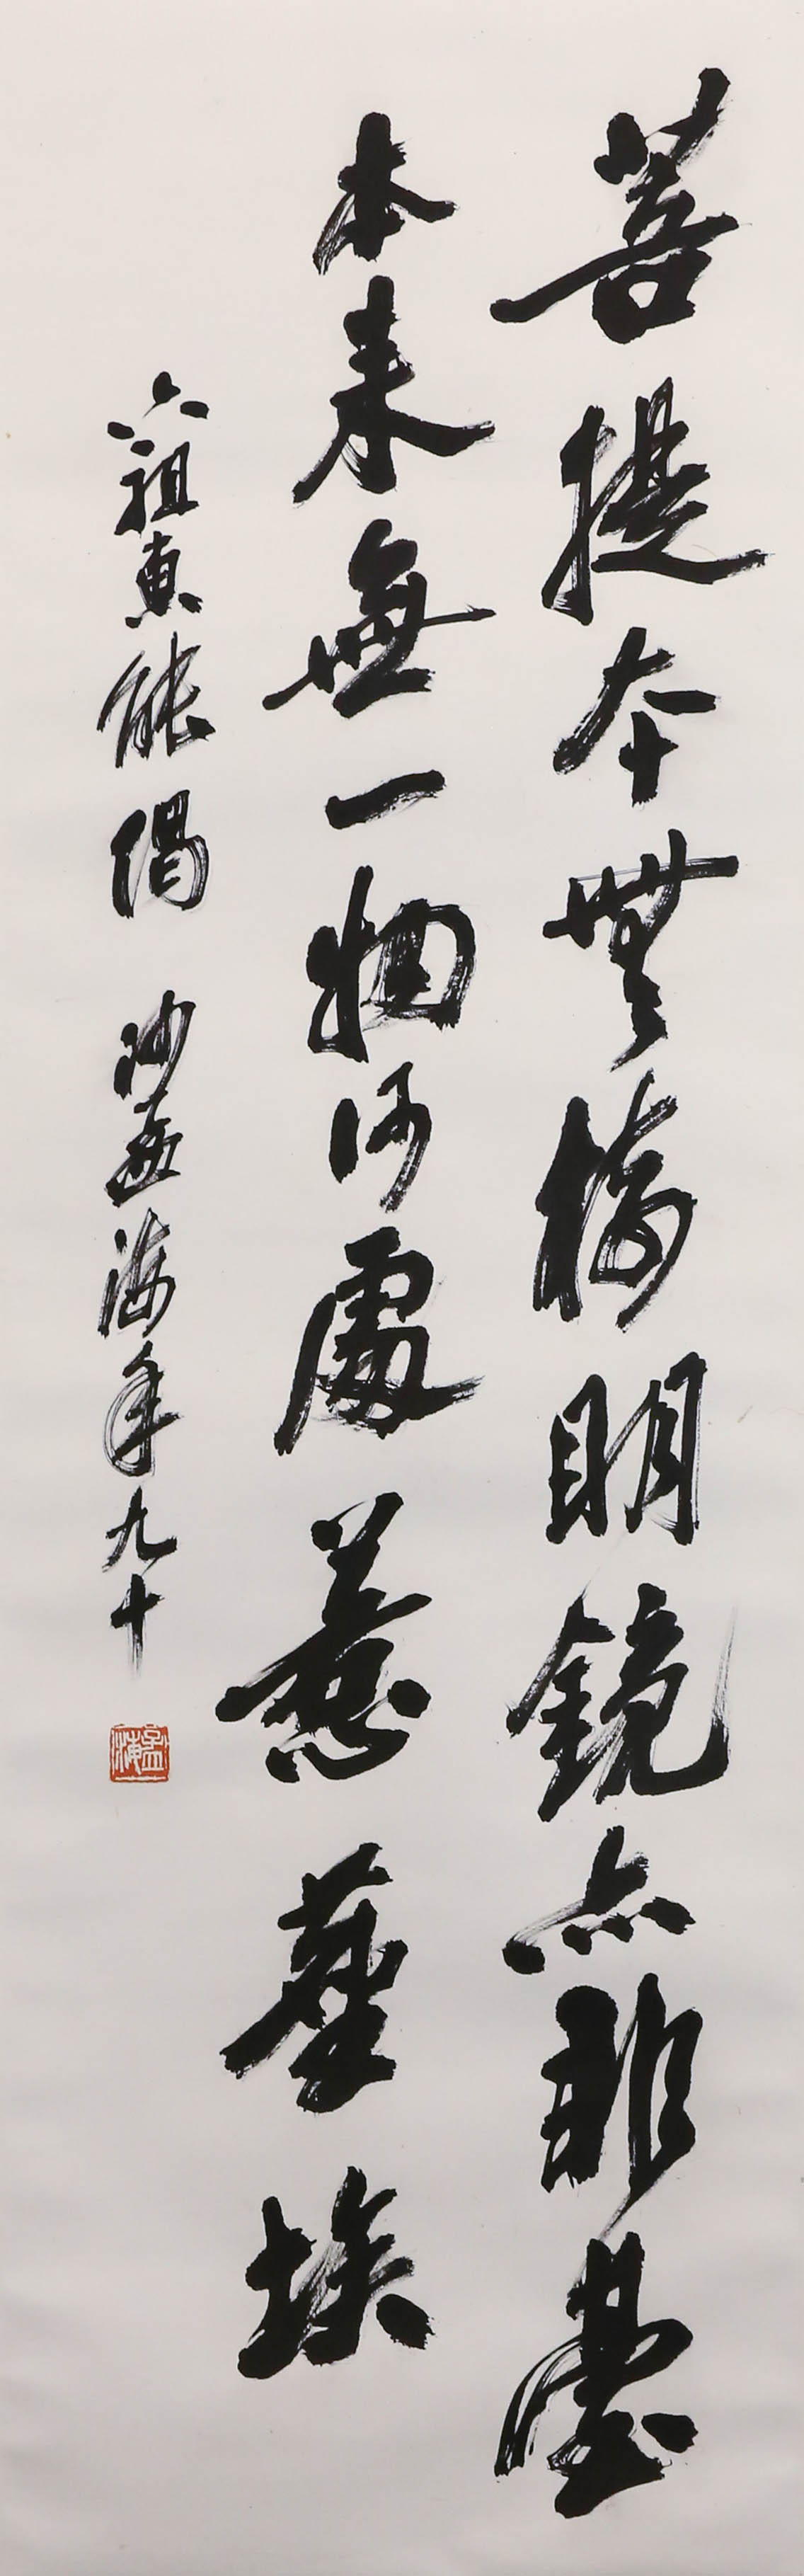 菩提本無樹明鏡亦非臺
本来無一物何處惹塵埃
六祖惠能偈 沙孟海年九十
孟海